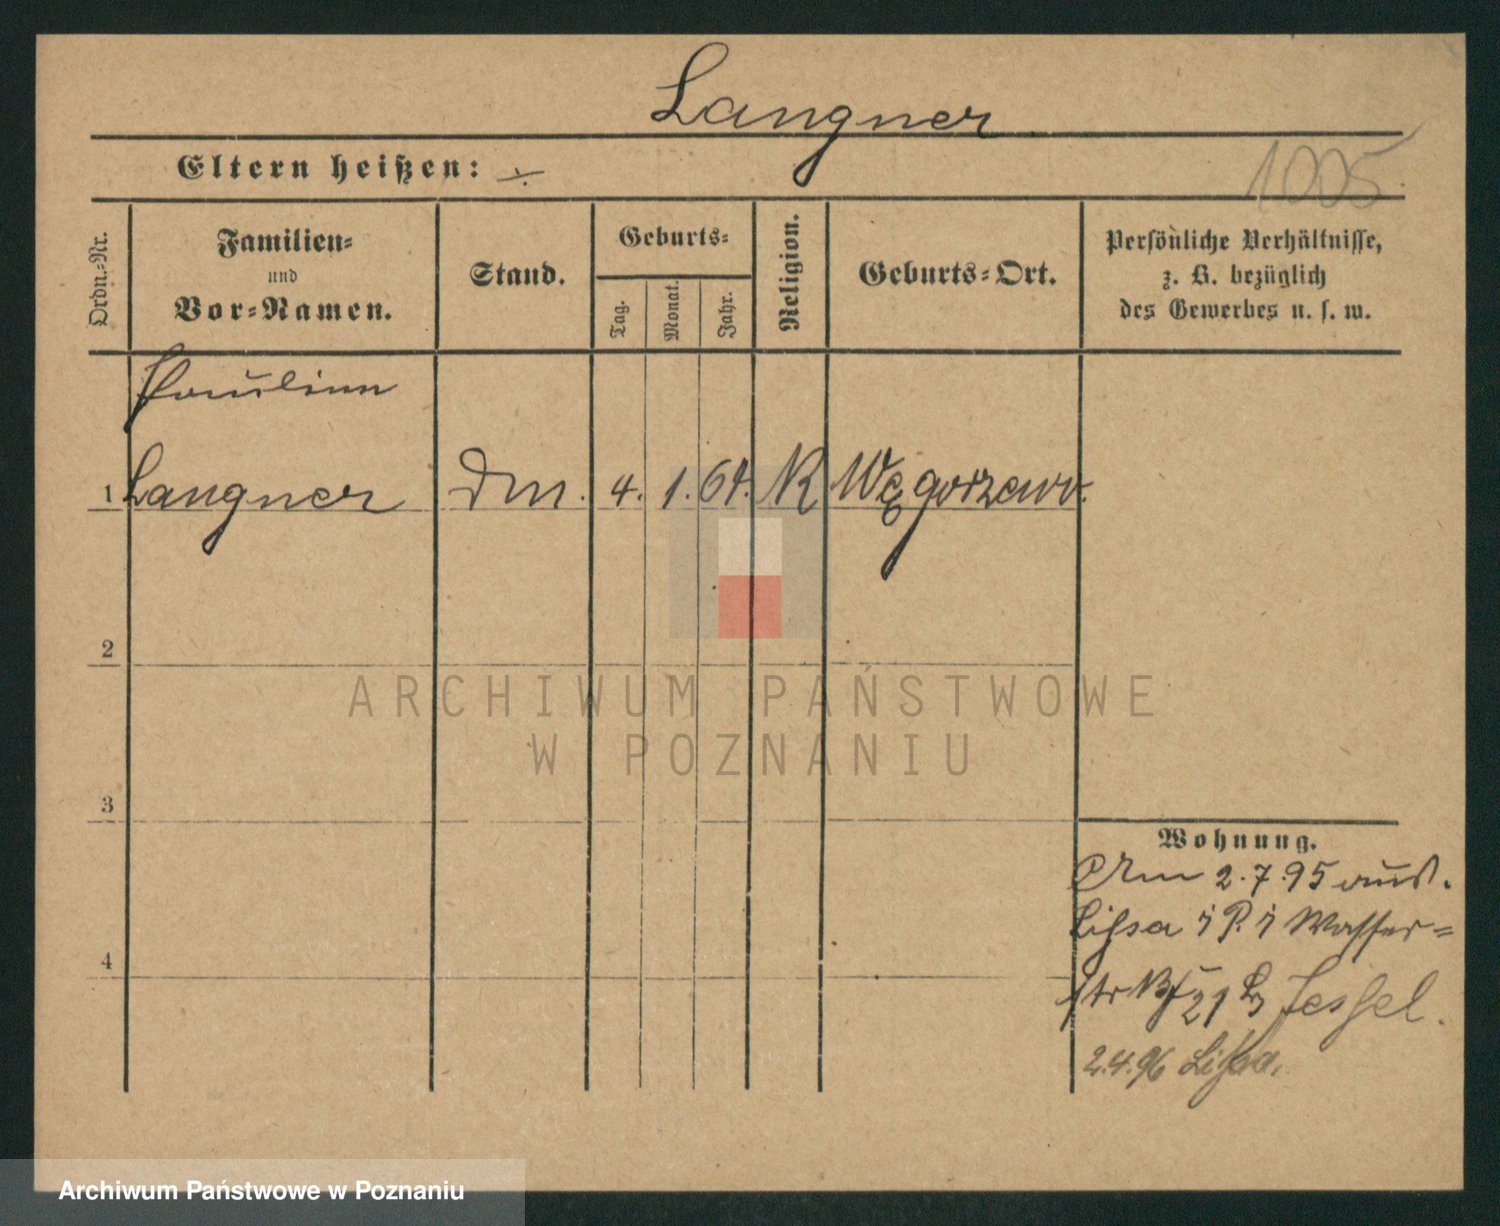 Langner
1005
Eltern heißen: ÷
Ordn.=Nr.
Familien=
und
Vor=Namen.
Stand.
Geburts=
Tag.
Monat.
Jahr.
Religion.
Geburts=Ort.
Persönliche Verhältnisse,
z. B. bezüglich
des Gewerbes u. s. w.
Pauline
1 Langner Dm. 4. 1. 64. K Węgorzewo.
2
3
4
ARCHIWUM PAŃSTWOWE
W POZNANIU
Wohnung.
Am 2.7.95 aus
Lissa i P. i Wasser=
str 21 Jessel.
2.4.96 Lissa.
Archiwum Państwowe w Poznaniu